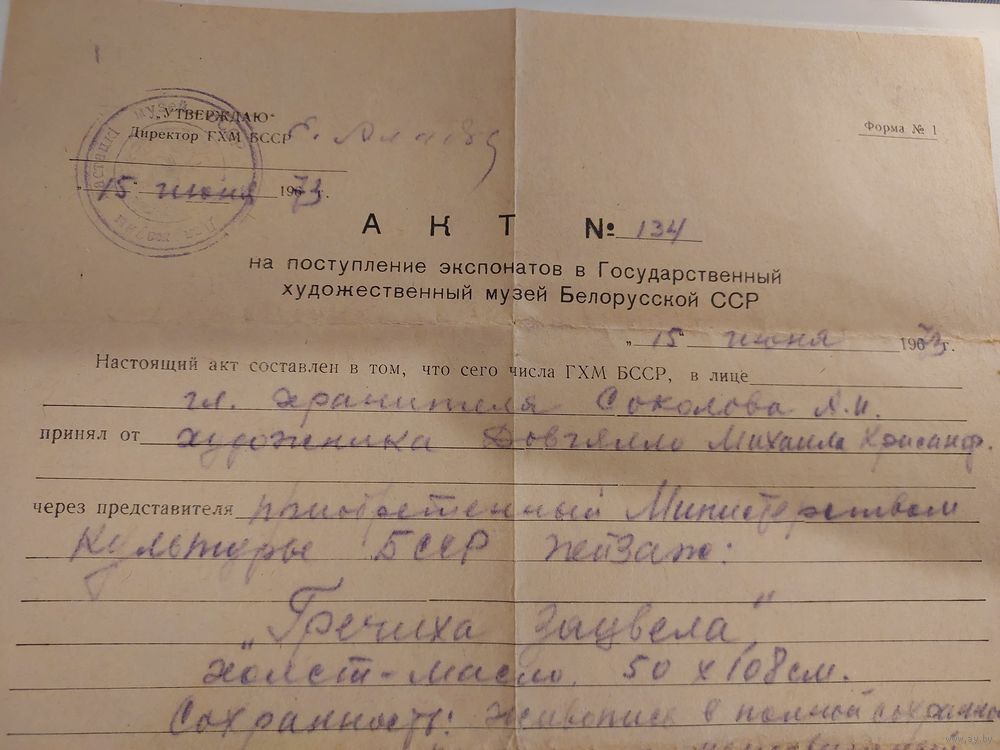 „УТВЕРЖДАЮ“
Директор ГХМ БССР
Форма № 1
„15“ июня 1973г.
АКТ № 134
на поступление экспонатов в Государственный
художественный музей Белорусской ССР
„15“ июня 1973г.
Настоящий акт составлен в том, что сего числа ГХМ БССР, в лице
гл. хранителя Соколова А.И.
принял от художника Довгялло Михаила Хрисанф.
через представителя приобретенный Министерством
Культуры БССР пейзаж:
„Гречиха зацвела“,
холст-масло, 50 х 108 см.
Сохранность: живопись в полной
www.ay.by